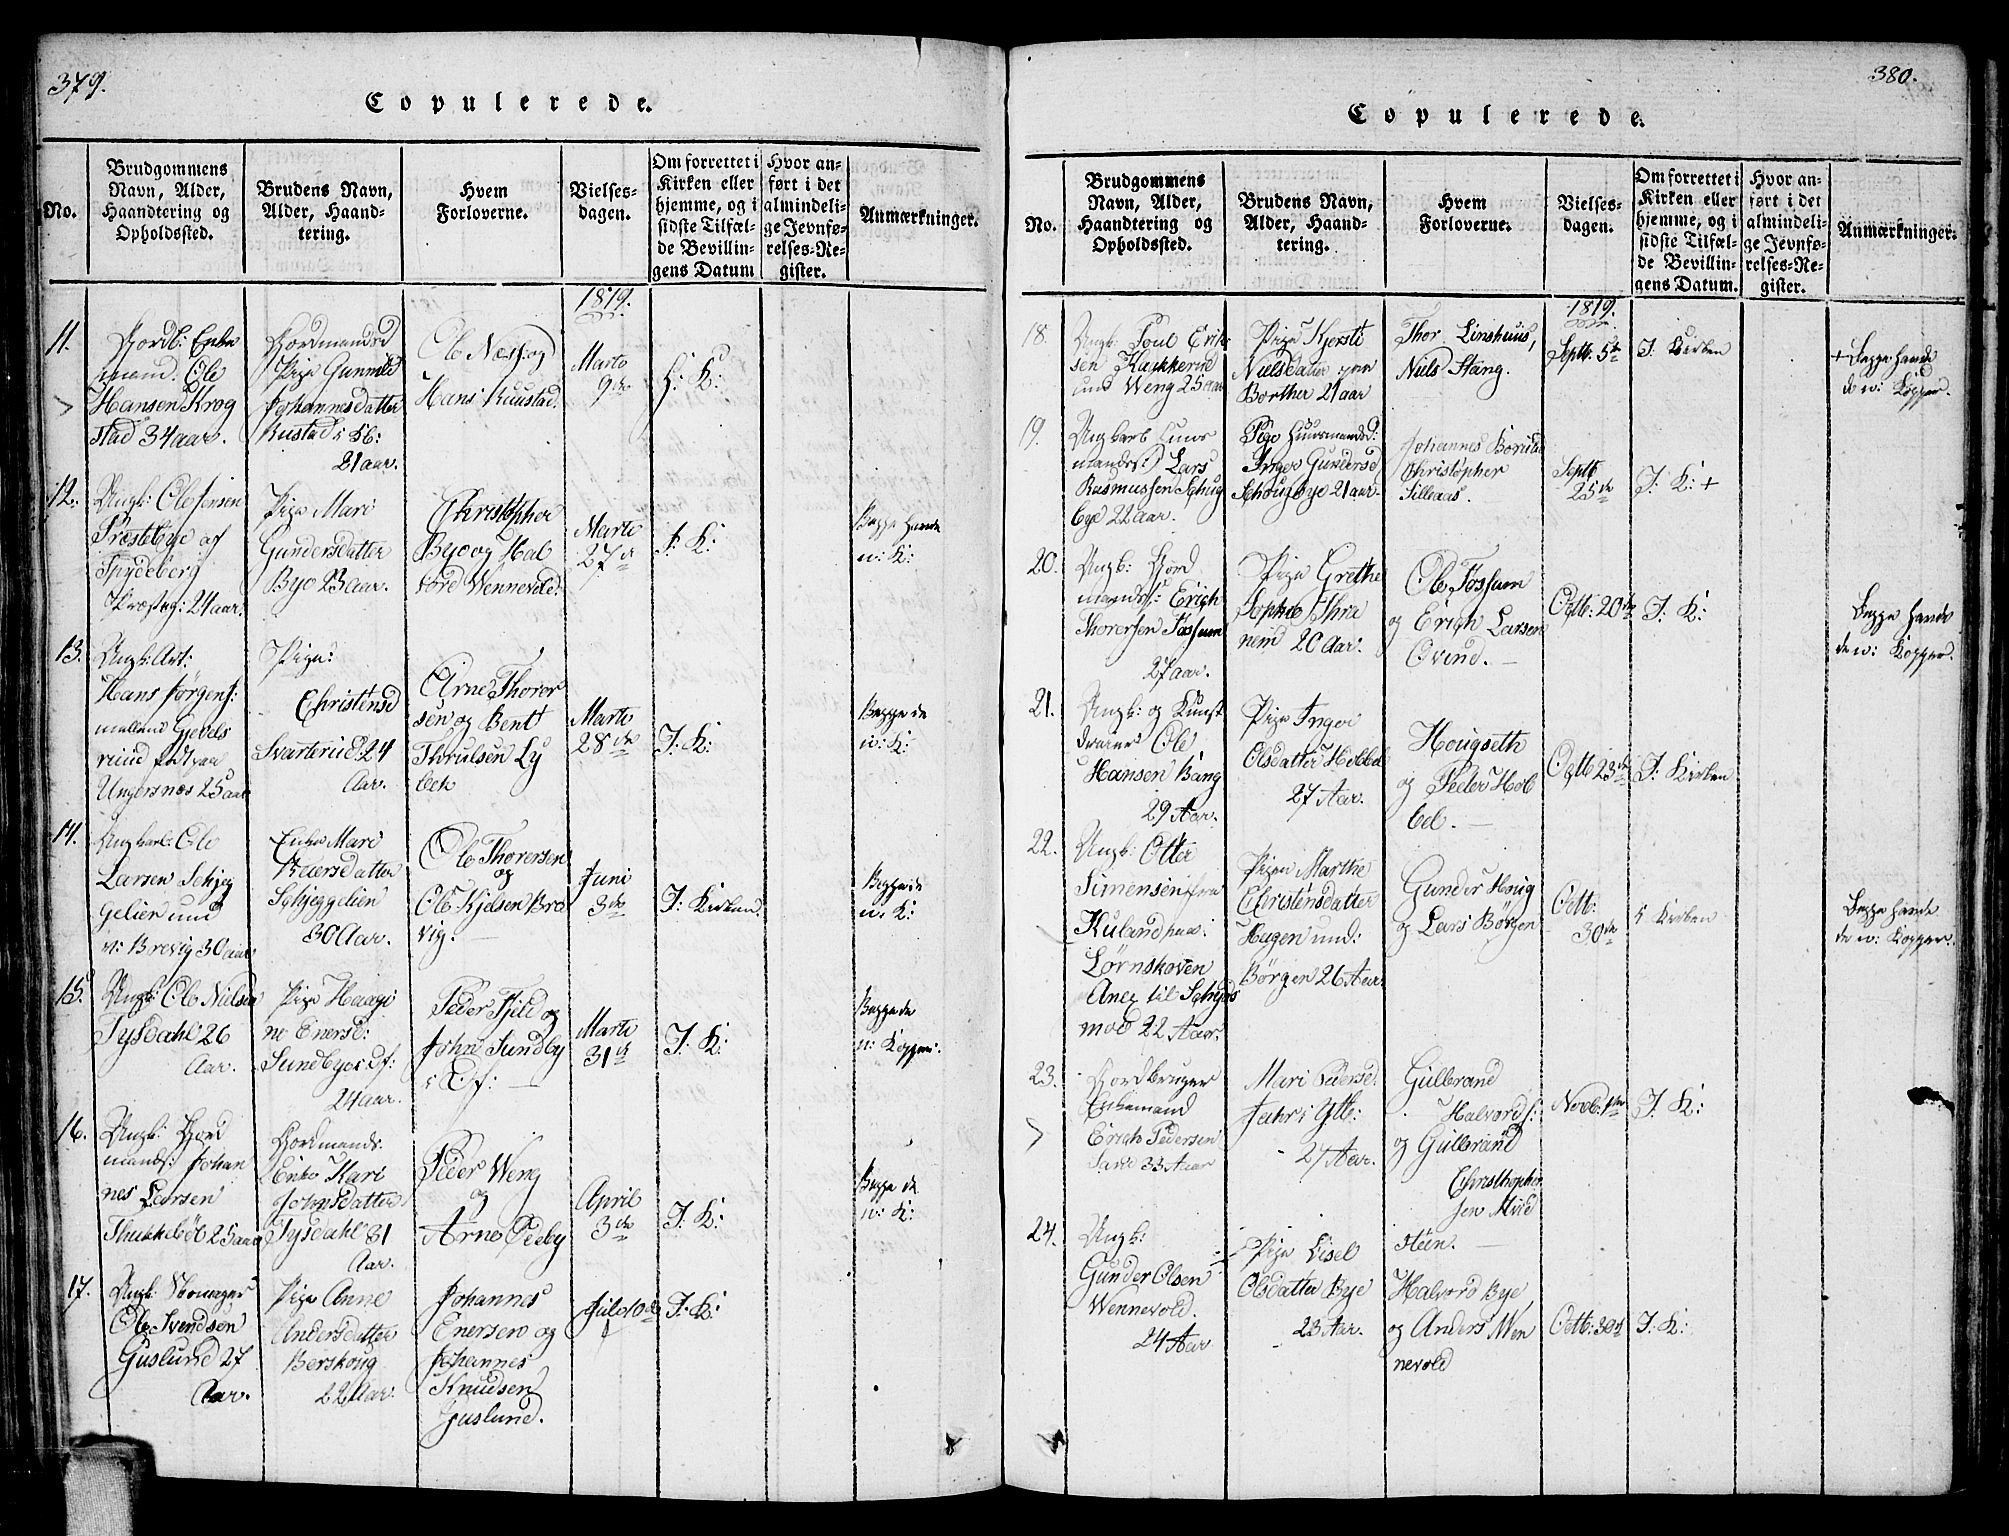 379.
Copulerede.
No.
Brudgommens Navn, Alder, Haandtering og Opholdssted.
Brudens Navn, Alder, Haandtering.
Hvem Forloverne.
Vielsesdagen.
Om forrettet i Kirken eller hjemme, og i sidste Tilfælde Bevillingens Datum
Hvor anført i det almindelige Jevnførelses-Register.
Anmærkninger.
1819.
11.
Gordb: Enke
mand. Ole
Hansen Krog
stad 34 aar.
Gordmandsd
Pige Gunnild
Johannesdatter
Rustad
21 aar.
Ole Næss og
Hans Ruustad.
Marts
9de
K:
12.
Ungk: Ole Jensen
Præstebye af
Spydeberg
Præsteg: 24 aar.
Pige Mari
Gundersdatter
Bye 23 aar.
Christopher
Bye og Hal
vord Wennevold.
Marts
27de
I: K:
Begge havde
n: K:
13.
Ungk: Art:
Hans Jørgens:
mellem Gjevels
riud født paa
Ungersnæs 25 aar
Pige:
Christensd
Svarterud: 24
Aar.
Arne Thorer
sen og Bent
Throlsen Ly
bek
Marts
28de
I: K:
Begge de
n: K:
14.
Ungkarl: Ole
Larsen Schjeg
gelien und
n: Brevig 30 aar
Enke Mari
Peersdatter
Schjeggelien
30 Aar.
Ole Thorersen
og
Ole Kjelsen Bre
vig. —
Juni
3de
I: Kirken.
Begge de
n: K:
15.
Ungk: Ole Nielsen
Tysdahl 26
Aar.
Pige Haagi
ne Enersd:
Sundbye
24 aar.
Peder Fjeld og
John Sundby
Marts
31te
I: K:
Begge de
n: Kopper.
16.
Ungk: Gord
mands: Johan
nes Larsen
Thukkebøl 25 aar
Gordmands:
Enke Kari
Johnsdatter
Tysdahl 31
Aar.
Peder Weng
og
Arne Deeby
April
3de
I: K:
Begge de
n: K:
17.
Ungk:
Ole Svendsen
Guslund 27
Aar.
Pige Anne
Andersdatter
Berskoug
22 Aar.
Johannes
Enersen og
Johannes
Knudsen
Guslund.
Juli 10de
I: K:
380.
Copulerede.
No.
Brudgommens Navn, Alder, Haandtering og Opholdssted.
Brudens Navn, Alder, Haandtering.
Hvem Forloverne.
Vielsesdagen.
Om forrettet i Kirken eller hjemme, og i sidste Tilfælde Bevillingens Datum.
Hvor anført i det almindelige Jevnførelses-Register.
Anmærkninger.
1819.
18.
Ungk: Poul Erik
sen Kakkerud
und Weng 25 aar
Pige Kjersti
Nielsdatter paa
Borther 21 aar
Thor Linshuus,
Niels Stang.
Septb. 5te
I: Kirken
+ Begge havde
de n: Kopper.
19.
Ungkarl Huus
mands: Lars
Rasmussen Schug
bye 22 aar.
Pige Huusmandsd:
Inger Gundersd
Schougbye 21 aar.
Johannes
Christopher
Silleaas.
Septb
25de
I: K: +
20.
Ungk: Gord
mands: Erich
Thorersen Fossum
27 aar.
Pige Grethe
Sophie Thra
nem 20 Aar.
Ole Fossum
og Erich Larsen
Qvind. —
Octb: 20de
I: K:
Begge havde
de n: Kopper.
21.
Ungk: og Kunst
dreier Ole
Hansen Bang
29 Aar.
Pige Inger
Olsdatter Hobbel
27 Aar.
Hougseth
og Peder Hob
bel. —
Octb 23de
I: Kirken
22.
Ungk: Otter
Simensen fra
Kuland
Lørnskoven
Anex til Schids
moe 22 Aar.
Pigen Marthe
Christensdatter
Hagen und:
Börgen 26 Aar.
Gunder Houg
og Lars Börgen
Octb:
30de
i Kirken
Begge havde
de n: Kopper.
23.
Gordbruger
Enkemand
Erich Pedersen
33 Aar
Mari Pedersd.
27 Aar.
Gulbrand
Halvords:
og Gulbrand
Christopher
sen Mild
stein. —
Novb: 1te
I: K:
24.
Ungk:
Gunder Olsen
Wennevold.
24 Aar
Pige Lisel
Olsdatter Bye
23 Aar.
Halvord Bye
og Anders Wen
nevold
Octb: 30te
I: K: